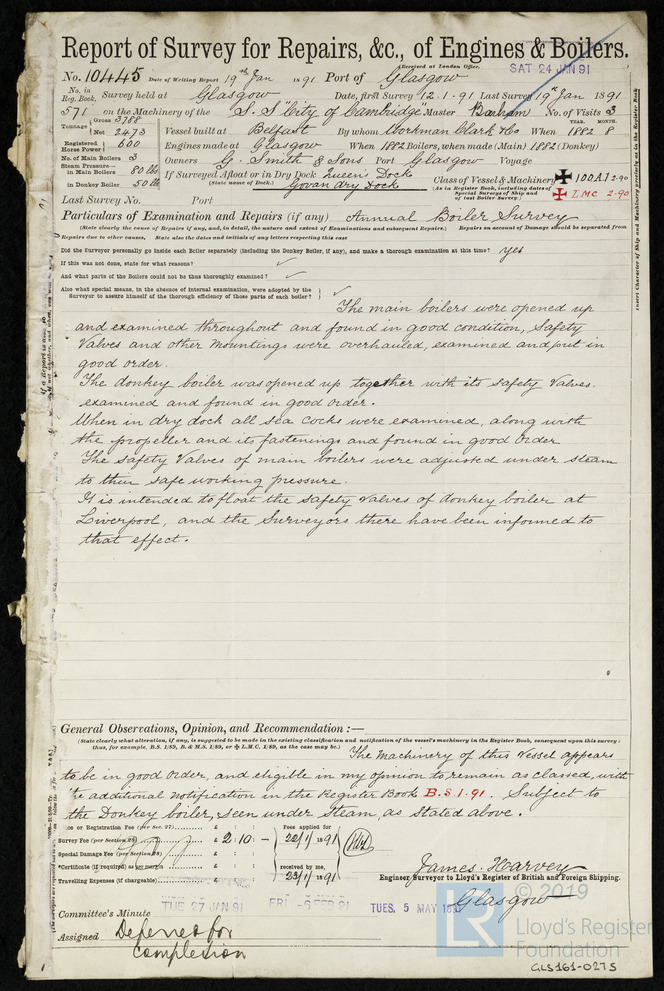 Report of Survey for Repairs, &c., of Engines & Boilers.
(Received at London Office.
SAT 24 JAN 91
No. 10445 Date of Writing Report 19th Jan 1891 Port of Glasgow
No. in Reg. Book. Survey held at Glasgow Date, first Survey 12.1.91 Last Survey 19th Jan 1891
571 on the Machinery of the S.S "City of Cambridge" Master No. of Visits 3
Tonnage Gross 3788
Net 2473
Vessel built at Belfast By whom Workman Clark & Co When YEAR. 1882 MONTH. 8
Registered Horse Power 600
Engines made at Glasgow When 1882 Boilers, when made (Main) 1882 (Donkey)
No. of Main Boilers 3
Owners G. Smith & Sons Port Glasgow Voyage
Steam Pressure— in Main Boilers 80 lbs
If Surveyed Afloat or in Dry Dock Queen's Dock
(State name of Dock.) Govan dry Dock
in Donkey Boiler 50 lb
Class of Vessel & Machinery 100A1 2.90
(As in Register Book, including dates of Special Surveys of Ship and of last Boiler Survey) LMC 2.90
Last Survey No. Port
Particulars of Examination and Repairs (if any) Annual Boiler Survey
(State clearly the cause of Repairs if any, and, in detail, the nature and extent of Examinations and subsequent Repairs. Repairs on account of Damage should be separated from
Repairs due to other causes, State also the dates and initials of any letters respecting this case
Did the Surveyor personally go inside each Boiler separately (including the Donkey Boiler, if any), and make a thorough examination at this time? yes
If this was not done, state for what reasons? ✓
And what parts of the Boilers could not be thus thoroughly examined? ✓
Also what special means, in the absence of internal examination, were adopted by the
Surveyor to assure himself of the thorough efficiency of those parts of each boiler? ✓
The main boilers were opened up
and examined throughout and found in good condition, Safety
Valves and other mountings were overhauled, examined and put in
good order.
The donkey boiler was opened up together with its safety valves.
examined and found in good order.
When in dry dock all sea cocks were examined, along with
the propeller and its fastenings and found in good order
The Safety Valves of main boilers were adjusted under steam
to their safe working pressure.
It is intended to float the safety valves of donkey boiler at
Liverpool, and the Surveyors there have been informed to
that effect.
General Observations, Opinion, and Recommendation :—
(State clearly what alteration, if any, is suggested to be made in the existing classification and notification of the vessel's machinery in the Register Book, consequent upon this survey:
thus, for example, B.S. 1/89, B. & M.S. 1/89, or L.M.C. 1/89, as the case may be.)
The Machinery of this Vessel appears
to be in good order, and eligible in my opinion to remain as classed, with
additional notification in the Register Book B.S.1.91. Subject to
the Donkey boiler, seen under Steam, as stated above.
or Registration Fee (per Sec. 27) £
Survey Fee (per Section 28) £ 2.10. –
Special Damage Fee (per Section 28) £
*Certificate (if required) as per margin £
Travelling Expenses (if chargeable) £
Fees applied for
22/1/1891
received by me,
23/1/1891
James Harvey
Engineer Surveyor to Lloyd's Register of British and Foreign Shipping.
Glasgow
Committee's Minute TUE 27 JAN 91 FRI -6 FEB 91 TUES. 5 MAY
Assigned Deferred for
completion
© 2019
LR
Lloyd's Register
Foundation
GLS161-0275